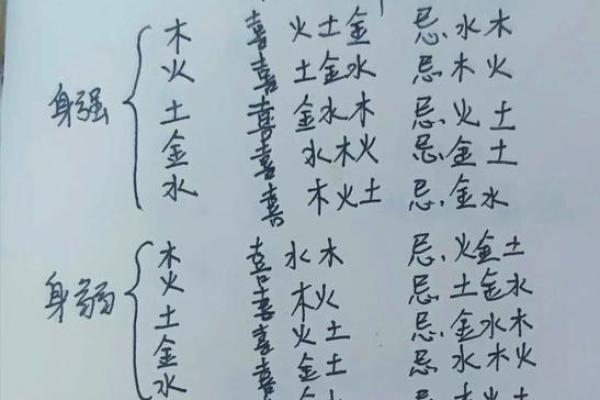 木 喜 火土金 忌.水木
火 喜 土金水 忌木火
身强 土 喜 金水木 忌.火土
金 喜 水木火 忌.金土
水 喜 木火土 忌.金水
木 喜 水木 忌.火金土
火 喜 木火 忌.土金水
身弱 土 喜 火土 忌.金水木
金 喜 金土 忌.水木火
水 喜 金水 忌.木火土